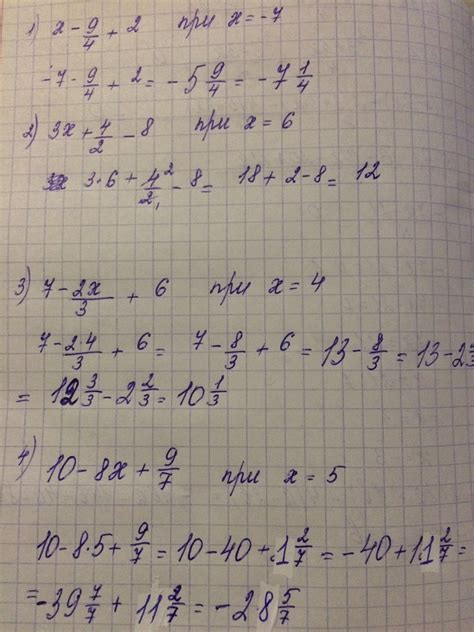 1) x - 9/4 + 2 при x = -7
-7 - 9/4 + 2 = -5 9/4 = -7 1/4
2) 3x + 4/2 - 8 при x = 6
3·6 + 4²/2₁ - 8 = 18 + 2 - 8 = 12
3) 7 - 2x/3 + 6 при x = 4
7 - 2·4/3 + 6 = 7 - 8/3 + 6 = 13 - 8/3 = 13 - 2 2/3
= 12 3/3 - 2 2/3 = 10 1/3
4) 10 - 8x + 9/7 при x = 5
10 - 8·5 + 9/7 = 10 - 40 + 1 2/7 = -40 + 11 2/7 =
= -39 7/7 + 11 2/7 = -28 5/7